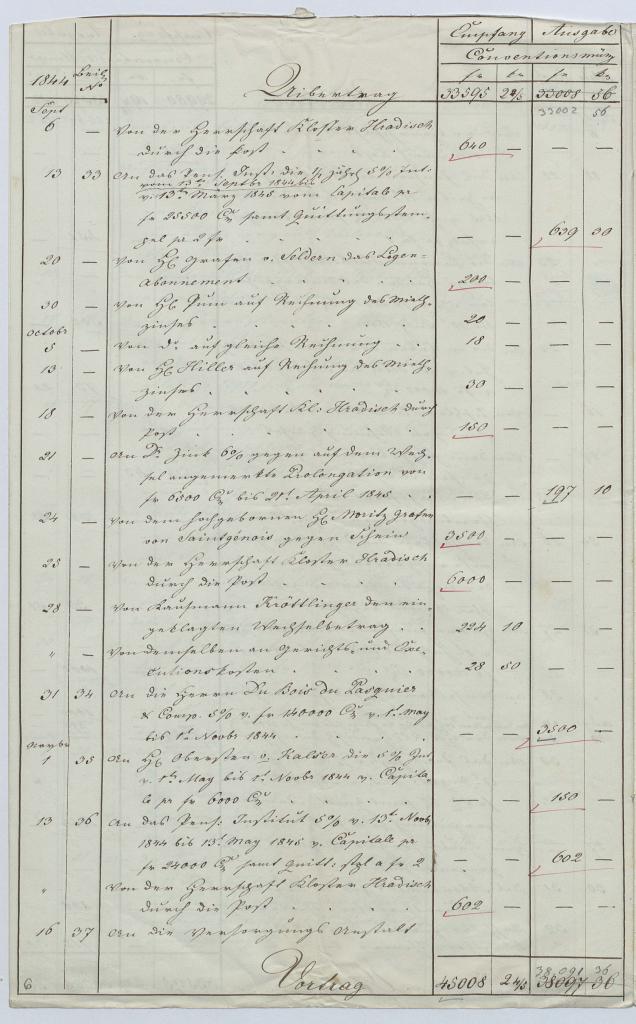 Empfang Ausgabe
Conventionsmünz
1844 Beil. No Uibertrag fr kr fr kr
33595 2 4/5 33008 56
33002 56
Sept
6 — Von der Herrschaft Kloster Hradisch
durch die Post 640 — — —
13 33 An das Pens. Inst: die 1/2 jähr 5% Int:
vom 13tn Septbr 1844 bis
13tn März 1845 vom Capitale pr
fr 25500 CM samt Quittungsstem-
pel pr 2 fr — — 639 30
20 — Von H. Grafen v. Seldern das Logen-
abonnement 200 — — —
30 — Von H. Pum auf Rechnung des Mieth-
zinses 20 — — —
Octobr
5 — Von do auf gleiche Rechnung 18 — — —
13 — Von H. Hiller auf Rechnung des Mieth-
zinses 30 — — —
18 — Von der Herrschaft Kl: Hradisch durch
Post 150 — — —
21 — An Dr Zink 6% gegen auf dem Wech-
sel angemerkte Prolongation von
fr 6500 CM bis 21t April 1845 — — 197 10
24 — Von dem hochgebornen H. Moritz Grafen
von Saintgénois gegen Schein 3500 — — —
25 — Von der Herrschaft Kloster Hradisch
durch die Post 6000 — — —
28 — Von Kaufmann Kröttlinger den ein-
geklagten Wechselbetrag 224 10 — —
" — Von demselben an Gerichts- und Exe-
cutionskosten 28 50 — —
31 34 An die Herrn Du Bois du Pasquier
& Comp. 5% v. fr 140000 CM v. 1t May
bis 1t Novbr 1844 — — 3500 —
Novbr
1 35 An H. Obersten v. Kalser die 5% Int
v. 1tn May bis 1t Novbr 1844 v. Capita-
le pr fr 6000 CM — — 150 —
13 36 An das Pens: Institut 5% v. 13t Novb
1844 bis 13t May 1845 v. Capitale pr
fr 24000 CM samt Quitt: stpl a fr 2 — — 602 —
" Von der Herrschaft Kloster Hradisch
durch die Post 602 — — —
16 37 An die Versorgungs Anstalt
38091 36
6 Vortrag 45008 2 4/5 38097 36